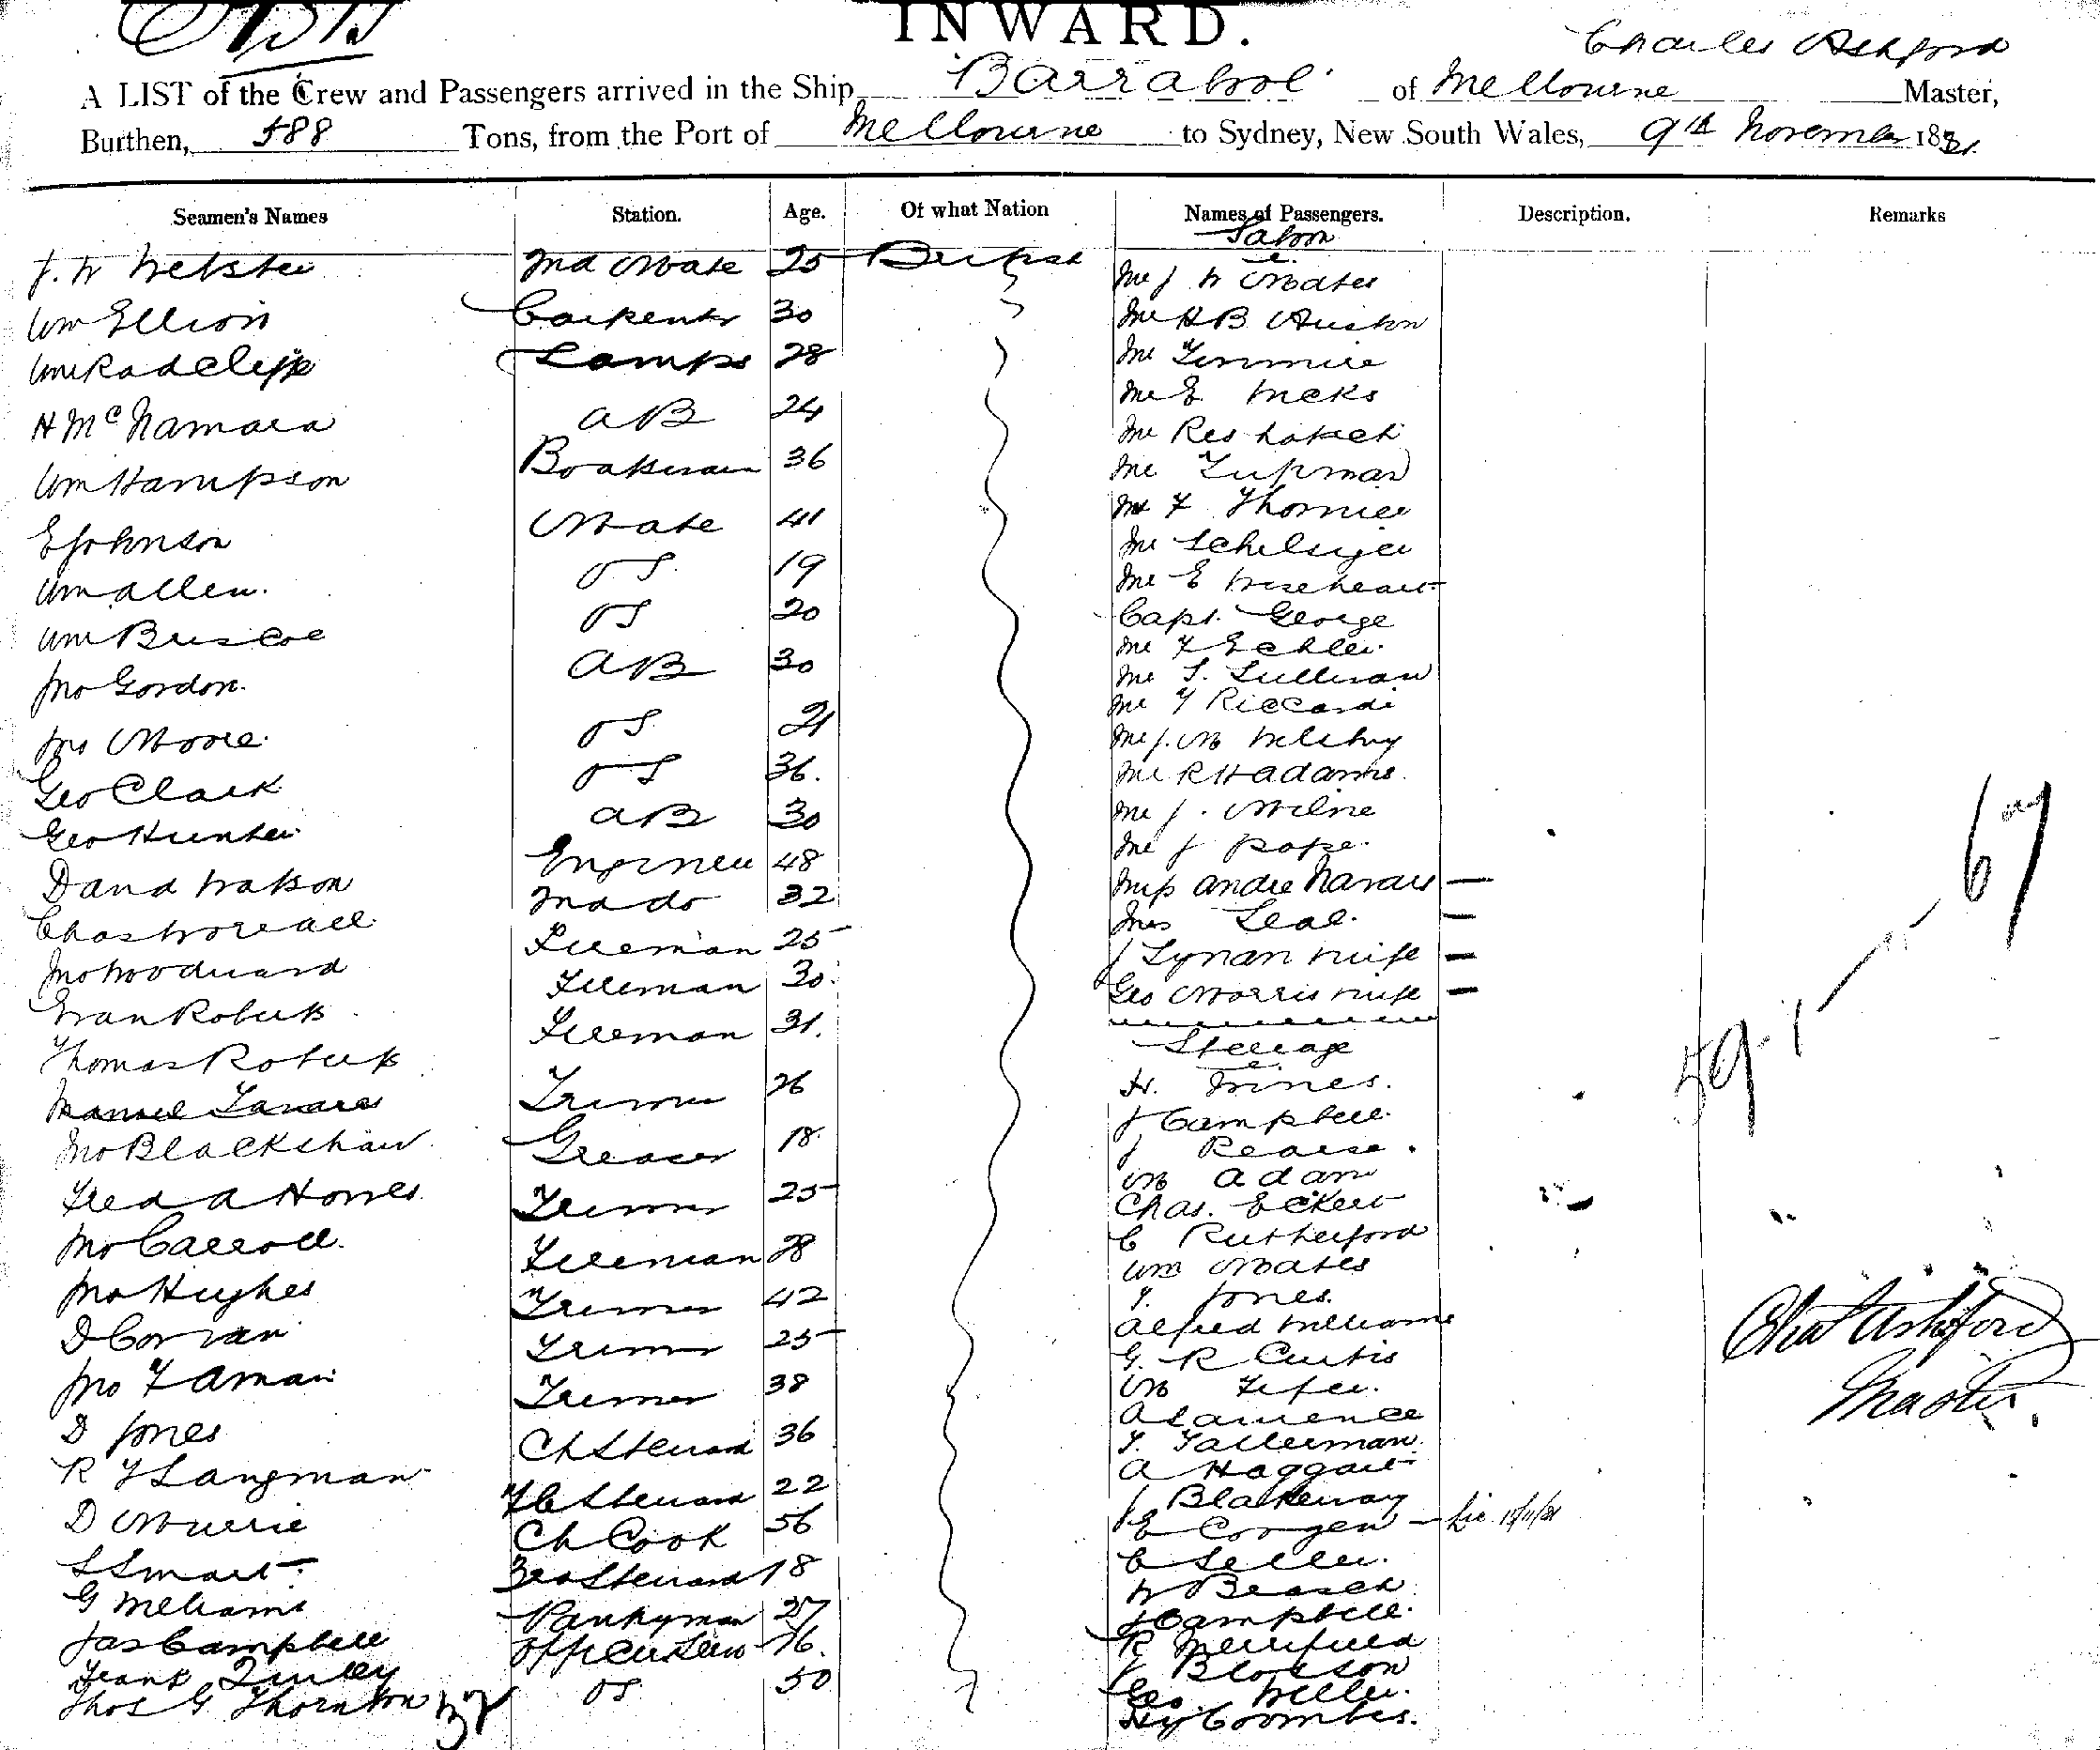 INWARD.
Charles Ashford
A LIST of the Crew and Passengers arrived in the Ship Barrabool of Melbourne Master,
Burthen, 588 Tons, from the Port of Melbourne to Sydney, New South Wales, 9th November 1881
Seamen's Names Station. Age. Of what Nation Names of Passengers. Description. Remarks
Saloon
J. W Webster 2nd Mate 25 British Mr J W Mates
Wm Ellison Carpenter 30 Mr H B Austin
Wm Radcliffe Lamps 28 Mr
H McNamara AB 24 Mr E Weeks
Wm Hampson Boatswain 36 Mr
E Johnson Mate 41 Mr Tupman
Wm Allen. OS 19 Mr F
Wm Briscoe OS 20 Mr
Jno Gordon. AB 30 Mr E
Jno Moore. OS 21 Capt. George
Geo Clark OS 36. Mr F
Geo Hunter AB 30 Mr S. Sullivan
David Watson Engineer 48 Mr Riccardi
Chas 2nd do 32 Mr J. M
Jno Woodward Fireman 25 Mr R H Adams.
Evan Roberts Fireman 30. Mr J. Milne
Thomas Roberts Fireman 31. Mr J Pope.
Manuel Tavares Trimmer 26 Miss Andre Navaro
Jno Blackshaw Greaser 18. Mrs Leal.
Fred A Homes Trimmer 25 J Lynan wife
Jno Carroll. Fireman 28 Geo Morris wife
Jno Hughes Trimmer 42 Steerage
D Corran Trimmer 25 H.
Jno F Aman Trimmer 38 J Campbell.
D Jones Ch Steward 36 J Pearse.
R Langman Steward 22 M Adam
D Murrie Ch Cook 56 Chas. Eckert
S Smart Steward 18 C Rutherford
G Williams Pantryman 27 Wm Mates
Jas Campbell 16. T. Jones.
Frank OS 50 Alfred Williams
Thos G Thornton 37 G. R Curtis
M
A Lawrence
T. Tallerman.
A Haggart
J Blakeway
E
C
W
J Campbell.
R Merrifield
J
Geo.
Hy Coombes.
59 . 1 67
Chas Ashford
Master